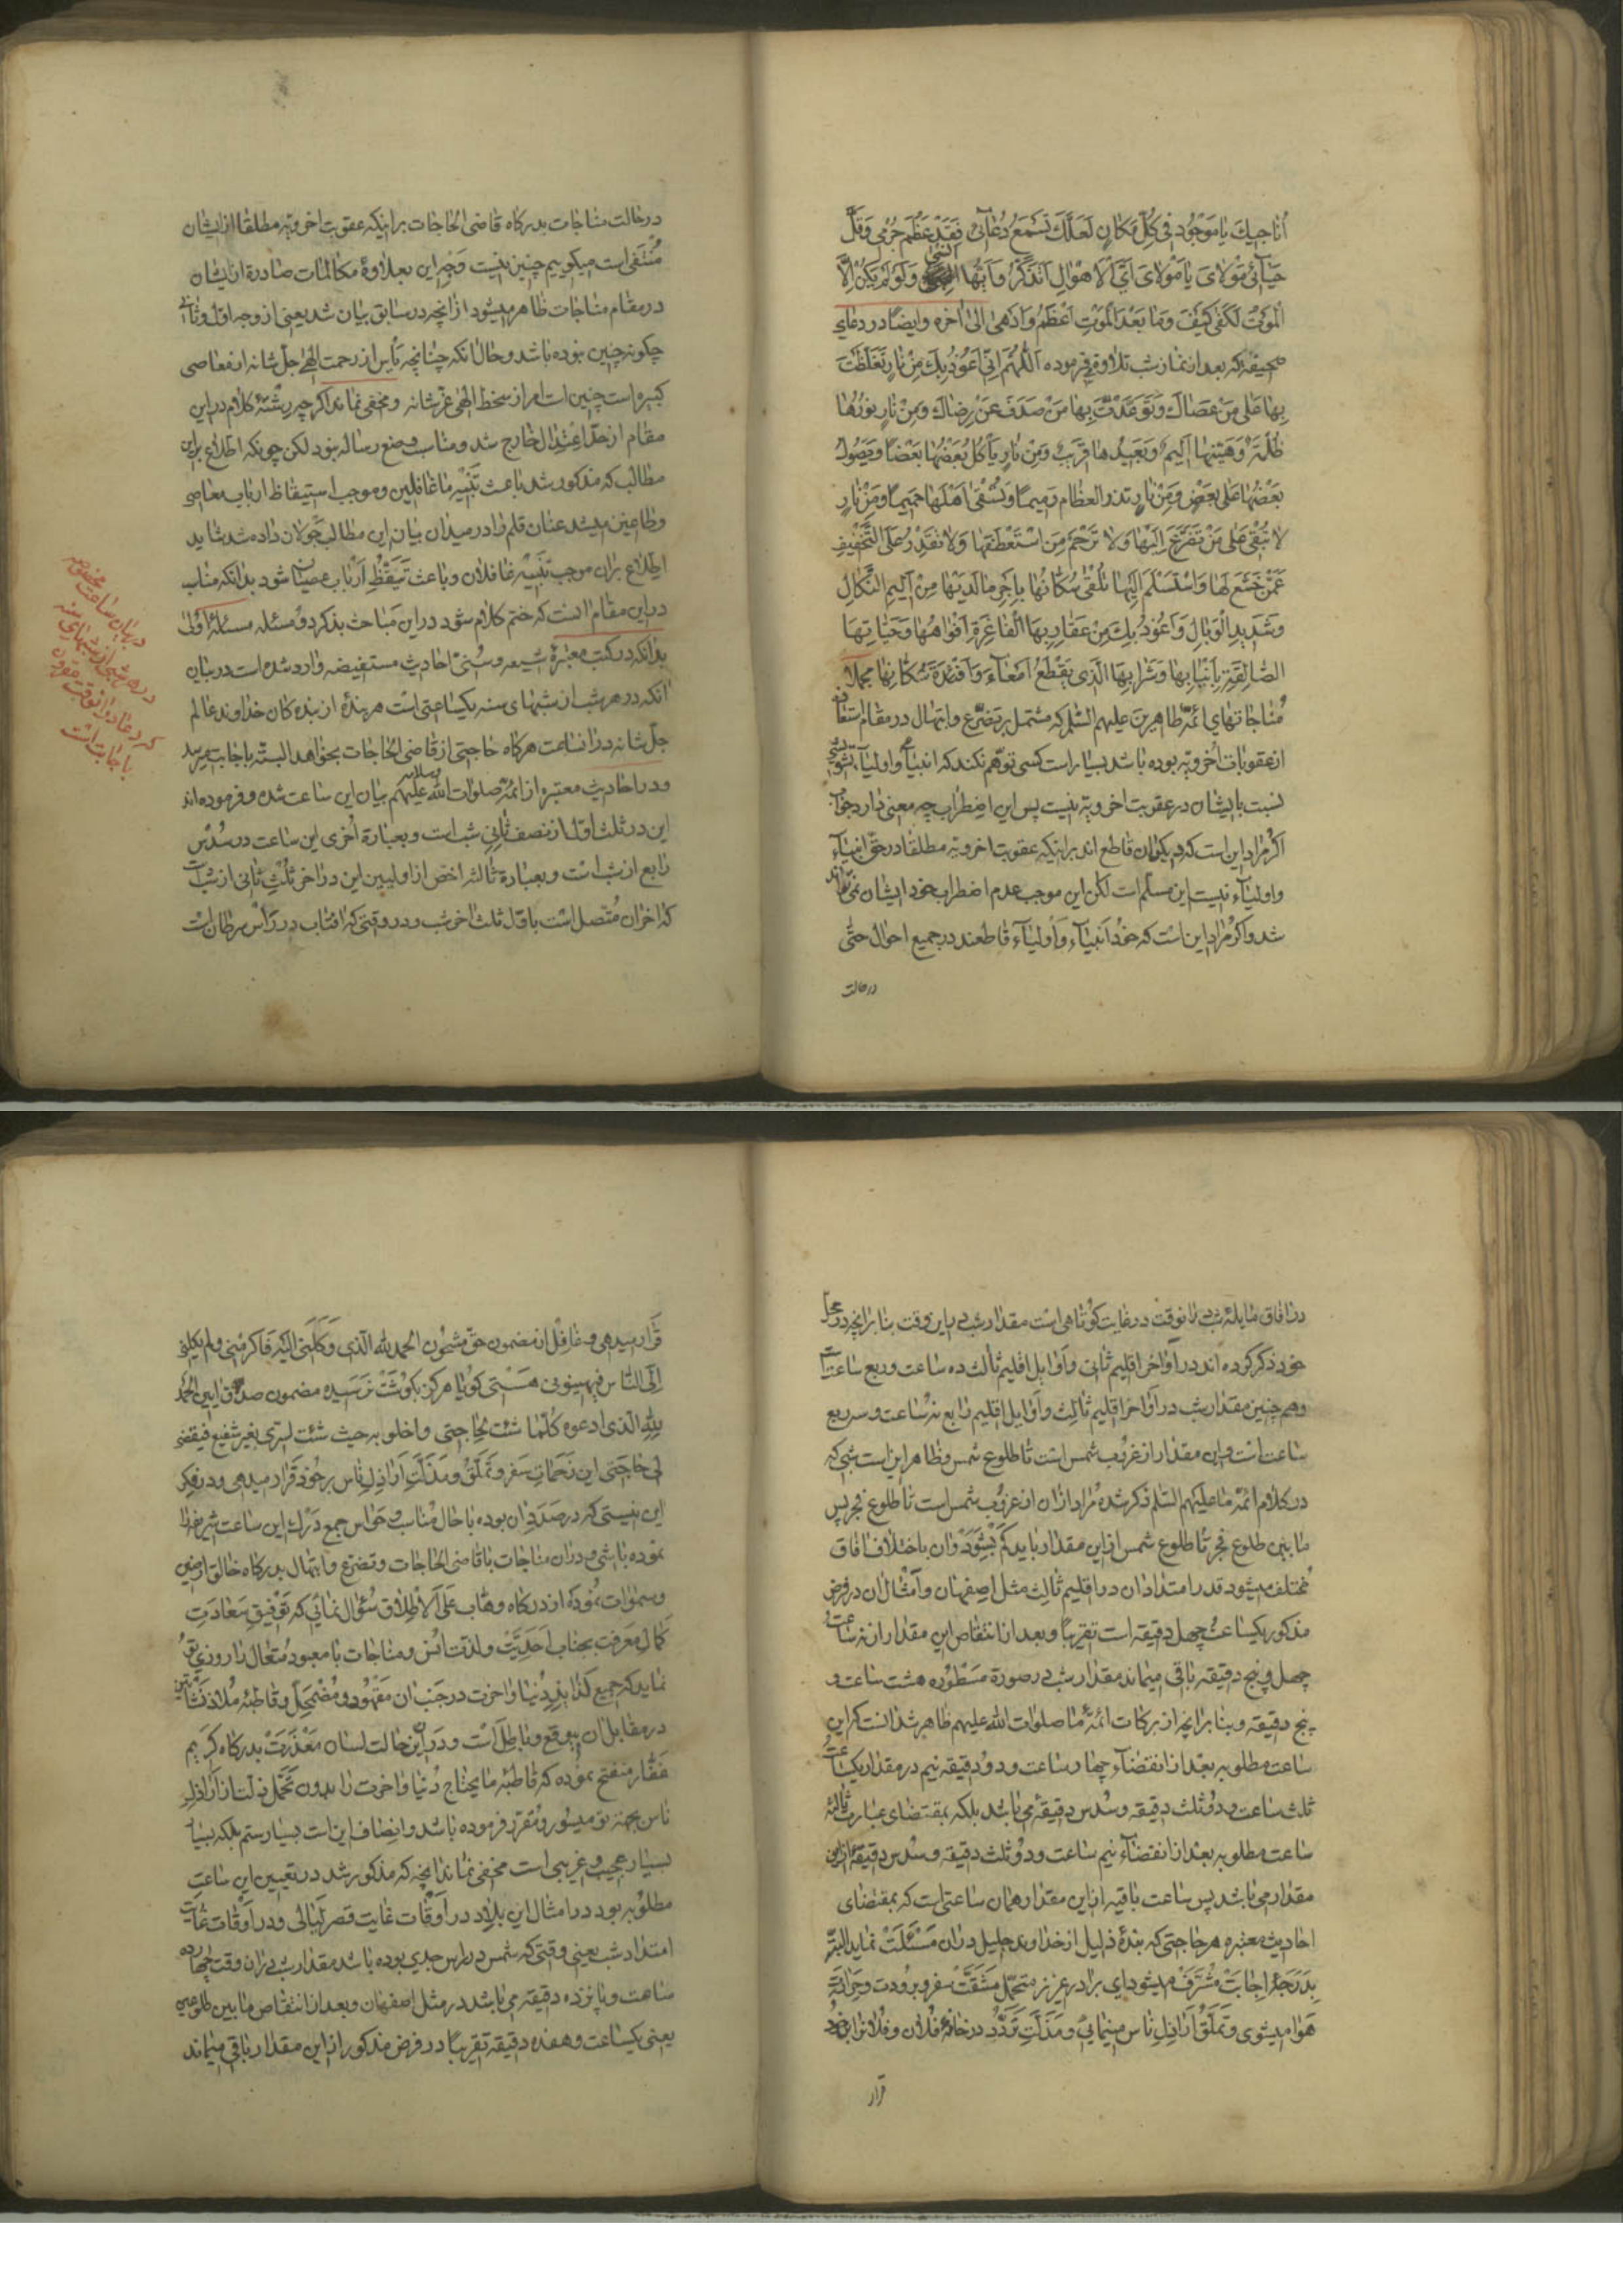 اُناجیکَ یا مَوجُود فی کُلِّ مَکانٍ لَعَلَّکَ تَسْمَعُ دُعآئی فَقَدْ عَظُمَ جُرْمی وَقَلَّ
حَیآئی مَوْلایَ یا مَوْلایَ اَیَّ الْاَهْوالِ اَتَذَکَّرُ وَاَیَّها اَنْسی وَلَوْ لَمْ یَکُنْ اِلَّا
الْمَوْتُ لَکَفی کَیْفَ وَما بَعْدَ الْمَوْتِ اَعْظَمُ وَاَدْهی الی اخره وایضا در دعای
صحیفه که بعد از نماز شب تلاوة می فرموده اَللّٰهُمَّ اِنّی اَعُوذُ بِکَ مِنْ نارٍ تَغَلَّظْتَ
بِها عَلی مَنْ عَصاکَ وَتَوَعَّدْتَ بِها مَنْ صَدَفَ عَنْ رِضاکَ وَمِنْ نارٍ نُورُها
ظُلْمَةٌ وَهَیِّنُها اَلیمٌ وَبَعیدُها قَریبٌ وَمِنْ نارٍ یَأْکُلُ بَعْضُها بَعْضًا وَیَصُولُ
بَعْضُها عَلی بَعْضٍ وَمِنْ نارٍ تذر العظام رَمیمًا وَتَسْقی اَهْلَها حَمیمًا وَمِنْ نارٍ
لا تُبْقی عَلی مَنْ تَضَرَّعَ اِلَیْها وَلا تَرْحَمُ مَنِ اسْتَعْطَفَها وَلا تَقْدِرُ عَلَی التَّخْفیفِ
عَمَّنْ خَشَعَ لَها وَاسْتَسْلَمَ اِلَیْها تَلْقی سُکّانَها بِاَحَرِّ ما لَدَیْها مِنْ اَلیمِ النَّکالِ
وَشَدیدِ الْوَبالِ وَاَعُوذُ بِکَ مِنْ عَقارِبِها الْفاغِرَةِ اَفْواهُها وَحَیّاتِها
الصّالِقَةِ بِاَنْیابِها وَشَرابِها الَّذی یَقْطَعُ اَمْعآءَ وَاَفْئِدَةَ سُکّانِها مجملا
مُناجاتهای ائمّه طاهرین علیهم السّلم که مشتمل بر تضرّع وابتهال در مقام استغاثه
از عقوبات اُخرویّه بوده باشد بسیار است کسی توهّم نکند که انبیآء واولیآء
نسبت بایشان در عقوبت اخرویّه نیست پس این اضطراب چه معنی دارد جواب
اکر مراد این است که دیکران قاطع اند براینکه عقوبت اخرویه مطلقا در حقّ انبیآء
واولیآء نیست این مسلّم است لکن این موجب عدم اضطراب خود ایشان نمی تواند
شد واکر مراد این است که خود اَنبیآء وَاولیآء قاطعند در جمیع احوال حتّی
درحالت
درحالت مناجات بدرکاه قاضی الحاجات براینکه عقوبت اخرویّه مطلقا از ایشان
مُنتَفی است میکوییم چنین نیست وَجهِ این بعلاوهٔ مکالمات صادرة از ایشان
در مقام مناجات ظاهر میشود از انچه در سابق بیان شد یعنی از وجه اوّل وثانی
چکونه چنین بوده باشد وحال انکه چنانچه یأس از رحمت الهی جلّ شانه از معاصی
کبیره است چنین است امن از سخط الهی عزّ شانه ومخفی نماند اکر چه رشتهٔ کلام در این
مقام از حدّ اعتدال خارج شد ومناسب وضع رساله نبود لکن چونکه اطلاع براین
مطالب که مذکور شد باعث تَنَبُّهِ ما غافلین وموجب استیقاظ ارباب معاصی
وطاغین میشد عنان قلم را در میدان بیان این مطالب جَوَلان داده شد شاید
اِطّلاع بران موجب تَنَبُّهِ غافلان وباعث تَیَقُّظِ اَربابِ عصیان شود بدانکه مناسب
در این مقام انست که ختم کلام شود در این مَباحث بذکر دو مسئله مسئلهٔ اُولی
بدانکه در کتب معتبرهٔ شیعه وسُنّی احادیث مستفیضه وارد شده است در بیان
انکه در هر شب از شبهای سنه یکساعتی است هر بندهٔ از بنده کان خداوند عالم
جلّ شانه در ان ساعت هرکاه حاجتی از قاضی الحاجات بخواهد البتّه باجابت میرسد
ودر احادیث معتبره از ائمّه صلوات اللّه وسلامه علیهم بیان این ساعت شده وفرموده اند
این در ثلث اوّل از نصف ثانی شب است وبعبارة اُخری این ساعت در سُدُسِ
رابع از شب است وبعبارة ثالثه اخصّ از اولیین این در اخر ثُلْثِ ثانی از شب است
که اخر ان مُتّصل است باوّل ثلث اخر شب ودر وقتی که افتاب در رأس سرطان است
در بیان ساعت مخصوص
در هر شبی از شبهای سنه
که دعا در انوقت مقرون
باجابت است
در افاق مایله شب در انوقت در غایت کوتاهی است مقدار شب در این وقت بنابر انچه در محلّ
خود ذکر کرده اند در اَواخر اقلیم ثانی واَوایل اقلیم ثالث ده ساعت وربع ساعت است
وهم چنین مقدار شب در اَواخر اقلیم ثالِث واَوایل اقلیم رابع نه ساعت وسه ربع
ساعت است واین مقدار از غروب شمس است تا طلوع شمس وظاهر این است شبی که
در کلام ائمّه ما علیهم السّلم ذکر شده مُراد ازان از غروب شمس است تا طلوع فجر پس
ما بین طلوع فجر تا طلوع شمس از این مقدار باید کم بِشَوَد وان باختلاف افاق
مختلف میشود قدر امتداد ان در اقلیم ثالِث مثل اصفهان وَاَمثال ان در فرض
مذکور یکساعت وچهل دقیقه است تقریبًا وبعد از انتقاص این مقدار از نه ساعت
چهل وپنج دقیقه باقی میماند مقدار شب در صورة مَسْطُوره هشت ساعت و
پنج دقیقه وبنابر انچه از برکات ائمّهٔ ما صلوات اللّه علیهم ظاهر شد انست که این
ساعت مطلوبه بعد از انقضآء چهار ساعت ودو دقیقه نیم در مقدار یکساعت
ثلث ساعت ودو ثلث دقیقه وسُدس دقیقه می باشد بلکه بمقتضای عبارت ثالثه
ساعت مطلوبه بعد از انقضآء نیم ساعت ودو ثلث دقیقه وسُدس دقیقه از این
مقدار می باشد پس ساعت باقیه از این مقدار همان ساعتی است که بمقتضای
احادیث معتبره هر حاجتی که بندهٔ ذلیل از خداوند جلیل دران مَسْئَلَتْ نماید البتّه
بِدَرَجَهٔ اِجابَتْ مُشَرَّف میشود ای برادر عزیز متحمّل مَشَقَّتْ سفر وبرُودت وحَرارة
هَوا میشوی وتَمَلُّقِ اَراذِلِ ناس مینمائی ومَذَلّتِ تَرَدُّد در خانهٔ فُلان وفُلان را بر خود
قرار
قَرار میدهی وغافِل از مضمون حقّ مشحُون الحمد لله الّذی وَکَلَنی الیه فَاَکرَمَنی ولم یکلنی
اِلَی النّاس فیهینونی هستی کویا هرکز بکوشَتْ نرسیده مضمون صدق ایین الحمد
لِلّهِ الّذی ادعوه کُلّما شئت لحاجتی واخلو به حیث شئت لسرّی بغیر شفیع فیقضی
لی حاجتی این زَحَماتِ سَفر وتَمَلُّق ومَذَلَّتِ اَراذِلِ ناس بر خُود قَرار میدهی ودر فکر
این نیستی که درصَدَدِ ان بوده با حال مُناسب وحَواس جمع دَرْکِ این ساعت شریفه را
نموده باشی ودران مناجات با قاضی الحاجات وتضرّع وابتهال بدرکاه خالق ارضین
وسموات نمُوده از درکاه وهّاب عَلَی الْاِطْلاق سُؤال نمائی که تَوْفیقِ سَعادَتِ
کَمالِ مَعرفت بجناب اَحَدِیَّتْ ولذّت اُنس ومناجات با معبود مُتعال را روزی تو
نماید که جمیع لَذایذِ دُنیا واخرت در جَنب ان مَقْهُور ومُضْمَحِلّ وقاطبهٔ مَلاذ نَشأتین
در مقابل ان بیوقع وباطِل است ودر این حالت لسان مَعْذَرَتْ بدرکاه کریم
غفّار منفتح نموده که قاطبهٔ ما یحتاج دُنیا واخرت را بدون تَحَمُّلِ ذِلّت از اراذلِ
ناس بجهة تو میسُور ومُقرّر فرموده باشد وانصاف این است بسیار ستم بلکه بسیار
بسیار عجیب وغریبی است مخفی نماند انچه که مذکور شد در تعیین این ساعت
مطلوبه بود در امثال این بلاد در اَوْقات غایت قصر لَیالی ودر اَوْقات غایت
امتداد شب یعنی وقتی که شمس در رأس جدی بوده باشد مقدار شب در ان وقت چهارده
ساعت وپانزده دقیقه می باشد در مثل اصفهان وبعد از انتقاص ما بین طلوعین
یعنی یکساعت وهفده دقیقه تقریبًا در فرض مذکور از این مقدار باقی میماند